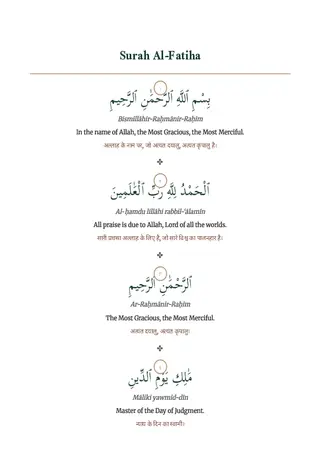 Surah Al-Fatiha
بِسْمِ ٱللَّهِ ٱلرَّحْمَٰنِ ٱلرَّحِيمِ
Bismillāhir-Raḥmānir-Raḥīm
In the name of Allah, the Most Gracious, the Most Merciful.
अल्लाह के नाम पर, जो अत्यंत दयालु, अत्यंत कृपालु है।
ٱلْحَمْدُ لِلَّهِ رَبِّ ٱلْعَٰلَمِينَ
Al-ḥamdu lillāhi rabbil-ʿālamīn
All praise is due to Allah, Lord of all the worlds.
सारी प्रशंसा अल्लाह के लिए है, जो सारे विश्व का पालनहार है।
ٱلرَّحْمَٰنِ ٱلرَّحِيمِ
Ar-Raḥmānir-Raḥīm
The Most Gracious, the Most Merciful.
अत्यंत दयालु, अत्यंत कृपालु।
مَٰلِكِ يَوْمِ ٱلدِّينِ
Māliki yawmid-dīn
Master of the Day of Judgment.
न्याय के दिन का स्वामी।